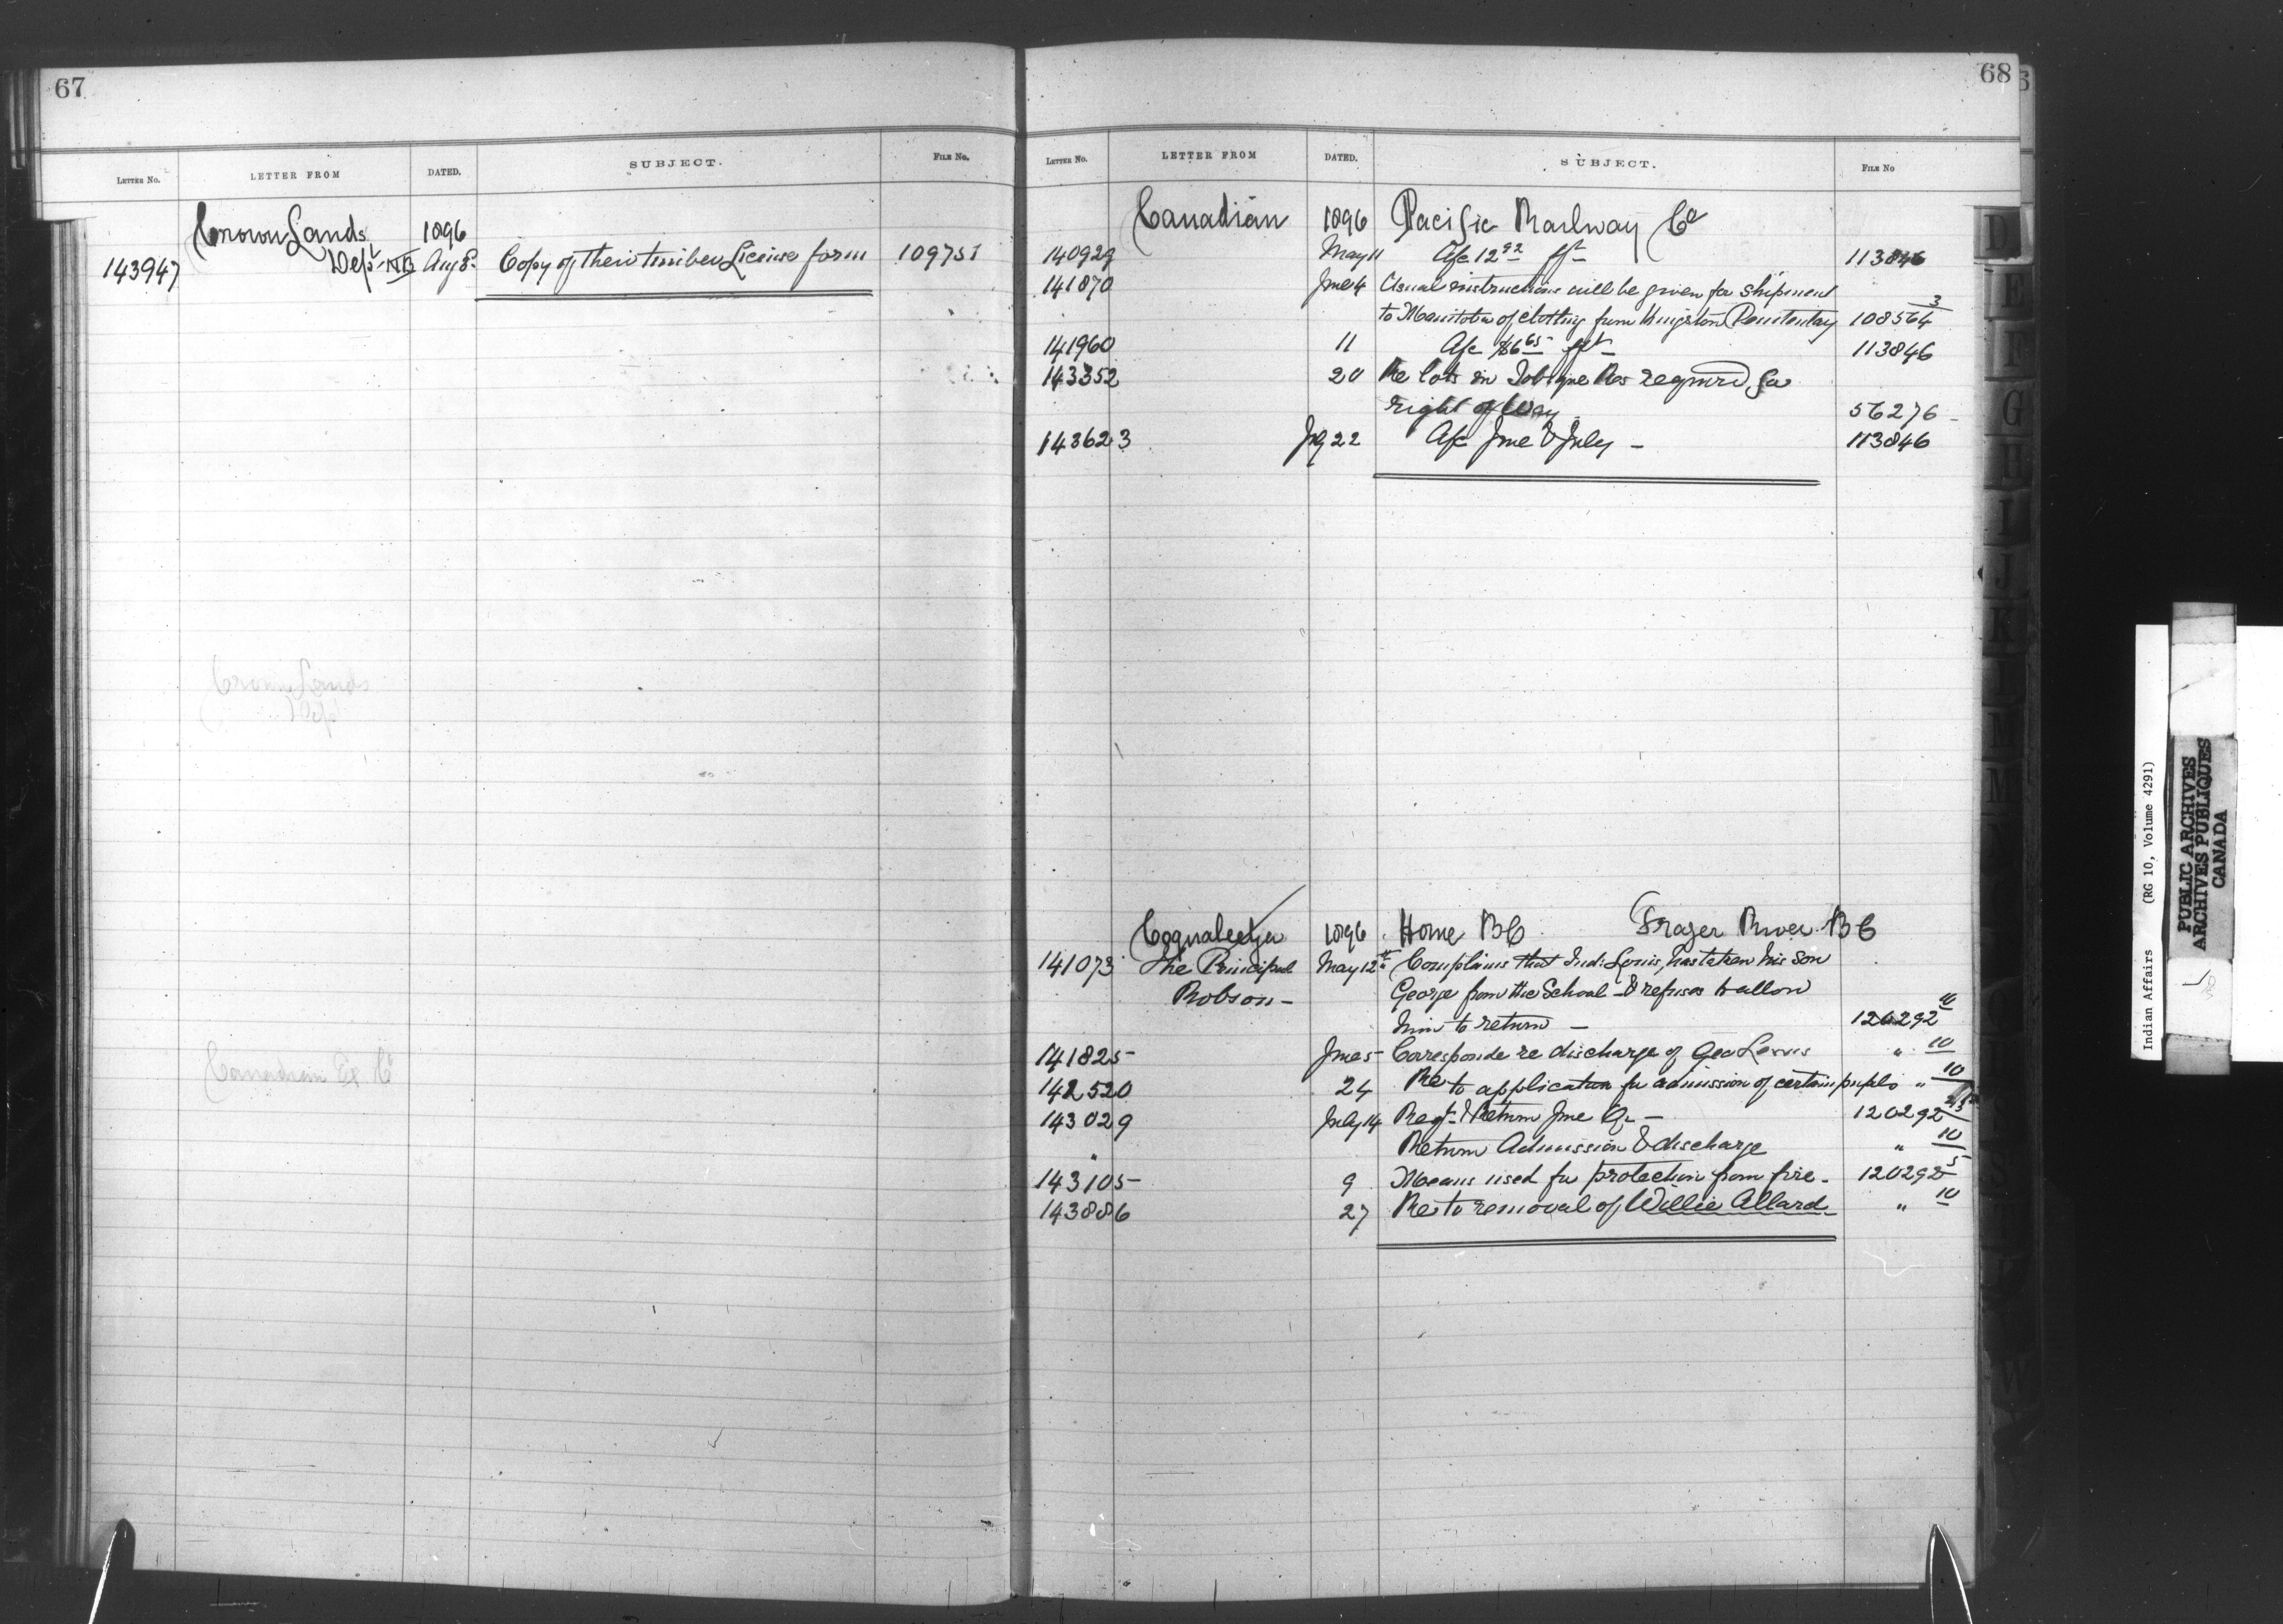 67
LETTER No. LETTER FROM DATED. SUBJECT. FILE No.
Crown Lands 1896
143947 Dept NB Aug 8 Copy of their timber License form 109751
Crown Lands
Dept
Canadian Ex Co
68
LETTER No. LETTER FROM DATED. SUBJECT. FILE No
Canadian 1896 Pacific Railway Co
140929 May 11 A/c 12 92 fgt 113846
141870 June 4 Usual instructions will be given for shipment
to Manitoba of clothing from Kingston Penitentiary 108564 3
141960 11 A/c $6 65 fgt 113846
143352 20 Re lots in Tobique Res required for
right of Way 56276 -
143623 Jy 22 A/c June & July - 113846
Coqualeetza 1896 Home BC Frazer River BC
141073 The Principal May 12th Complains that Ind: Louis, has taken his son
Robson - George from the School - & refuses to allow
him to return - 120292 10
141825 June 5 Corresponde re discharge of Geo Louis " 10
142520 24 Re to application for admission of certain pupils " 10
143029 July 14 Rept & Return June Qr - 120292
" Return Admission & discharge " 10
143105 9 Means used for protection from fire - 120292 5
143886 27 Re to removal of Willie Allard - " 10
D
E
F
G
H
I
J
K
L
M
W
Indian Affairs (RG 10, Volume 4291)
PUBLIC ARCHIVES
ARCHIVES PUBLIQUES
CANADA